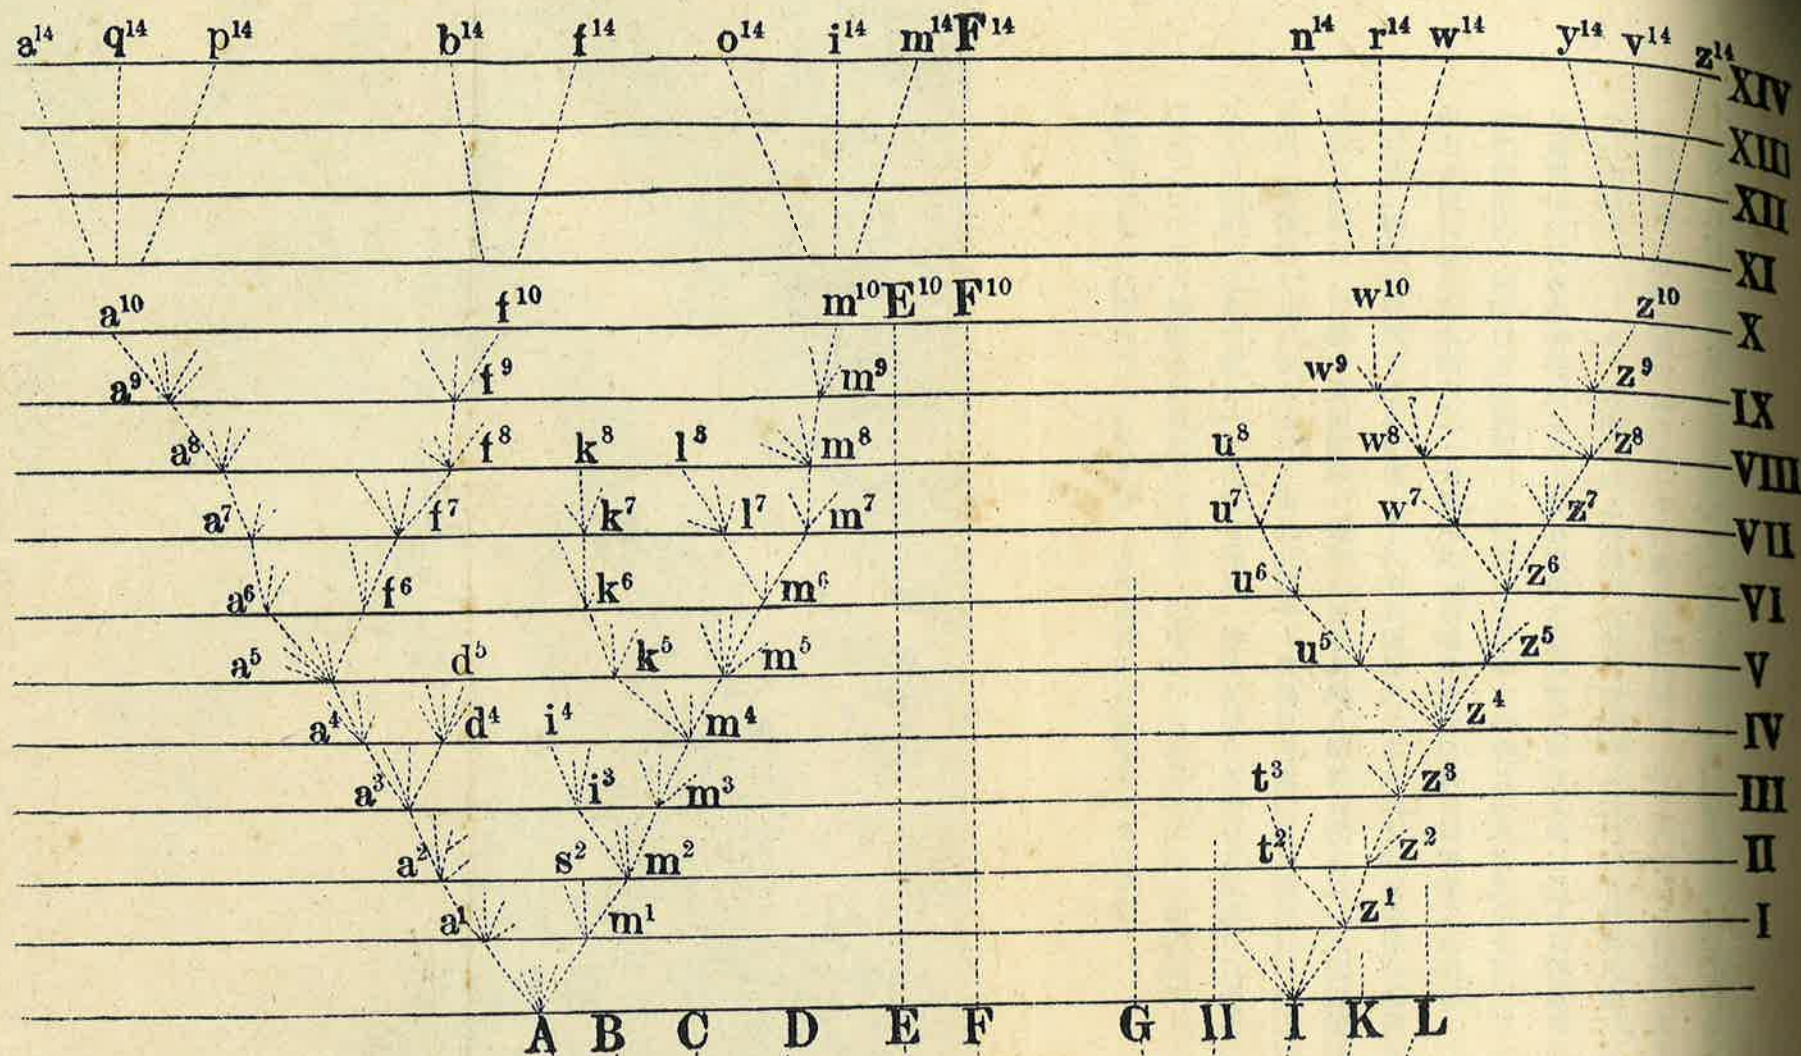 a¹⁴ q¹⁴ p¹⁴ b¹⁴ f¹⁴ o¹⁴ i¹⁴ m¹⁴ F¹⁴ n¹⁴ r¹⁴ w¹⁴ y¹⁴ v¹⁴ z¹⁴
XIV
XIII
XII
XI
a¹⁰ f¹⁰ m¹⁰ E¹⁰ F¹⁰ w¹⁰ z¹⁰
X
a⁹ f⁹ m⁹ w⁹ z⁹
IX
a⁸ f⁸ k⁸ l⁸ m⁸ u⁸ w⁸ z⁸
VIII
a⁷ f⁷ k⁷ l⁷ m⁷ u⁷ w⁷ z⁷
VII
a⁶ f⁶ k⁶ m⁶ u⁶ z⁶
VI
a⁵ d⁵ k⁵ m⁵ u⁵ z⁵
V
a⁴ d⁴ i⁴ m⁴ z⁴
IV
a³ i³ m³ t³ z³
III
a² s² m² t² z²
II
a¹ m¹ z¹
I
A B C D E F G H I K L